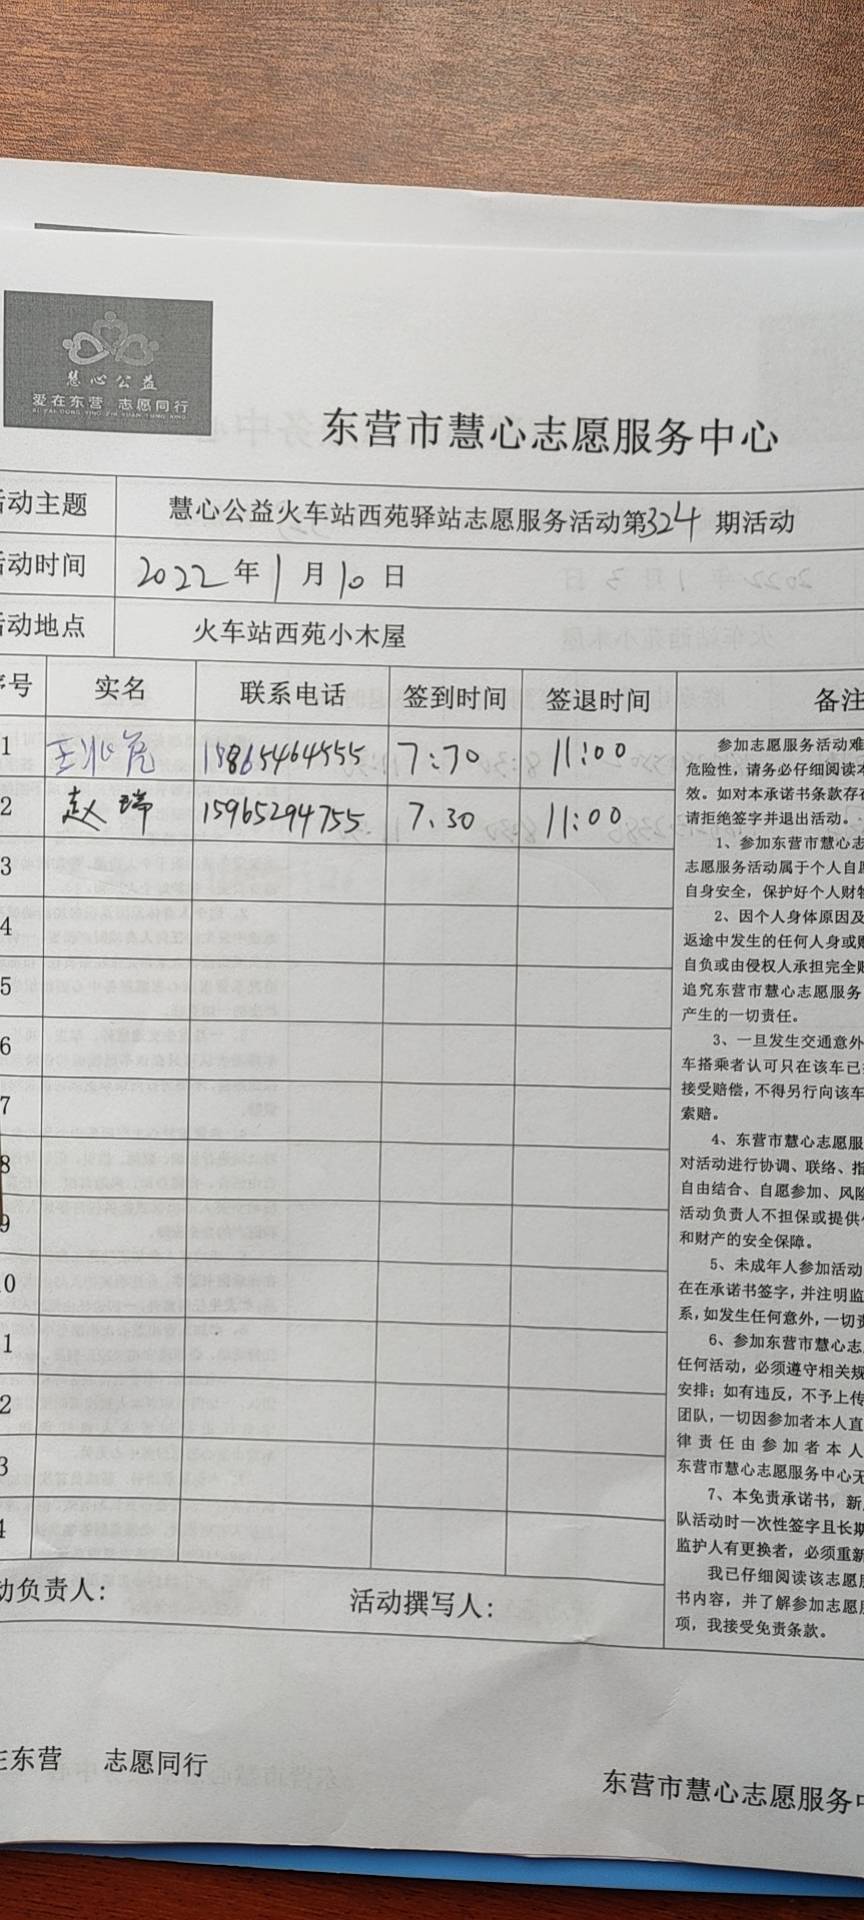 慧心公益
爱在东营 志愿同行
AI ZAI DONG YING ZHI YUAN TONG XING
东营市慧心志愿服务中心
活动主题 慧心公益火车站西苑驿站志愿服务活动第324期活动
动时间 2022年1月10日
动地点 火车站西苑小木屋
号 实名 联系电话 签到时间 签退时间 备注
1 王 15865464555 7:30 11:00
2 赵瑞 15965294755 7.30 11:00
3
4
5
6
7
8
9
0
1
2
3
4
参加志愿服务活动难
危险性，请务必仔细阅读本
效。如对本承诺书条款存在
请拒绝签字并退出活动。
1、参加东营市慧心志
志愿服务活动属于个人自愿
自身安全，保护好个人财物
2、因个人身体原因及
返途中发生的任何人身或财
自负或由侵权人承担完全赔
追究东营市慧心志愿服务
产生的一切责任。
3、一旦发生交通意外
车搭乘者认可只在该车已
接受赔偿，不得另行向该车
索赔。
4、东营市慧心志愿服
对活动进行协调、联络、指
自由结合、自愿参加、风险
活动负责人不担保或提供
和财产的安全保障。
5、未成年人参加活动
在在承诺书签字，并注明监
系，如发生任何意外，一切责
6、参加东营市慧心志
任何活动，必须遵守相关规
安排；如有违反，不予上传
团队，一切因参加者本人直
律责任由参加者本人
东营市慧心志愿服务中心无
7、本免责承诺书，新
队活动时一次性签字且长期
监护人有更换者，必须重新
我已仔细阅读该志愿服
书内容，并了解参加志愿服
项，我接受免责条款。
动负责人： 活动撰写人：
在东营 志愿同行
东营市慧心志愿服务中